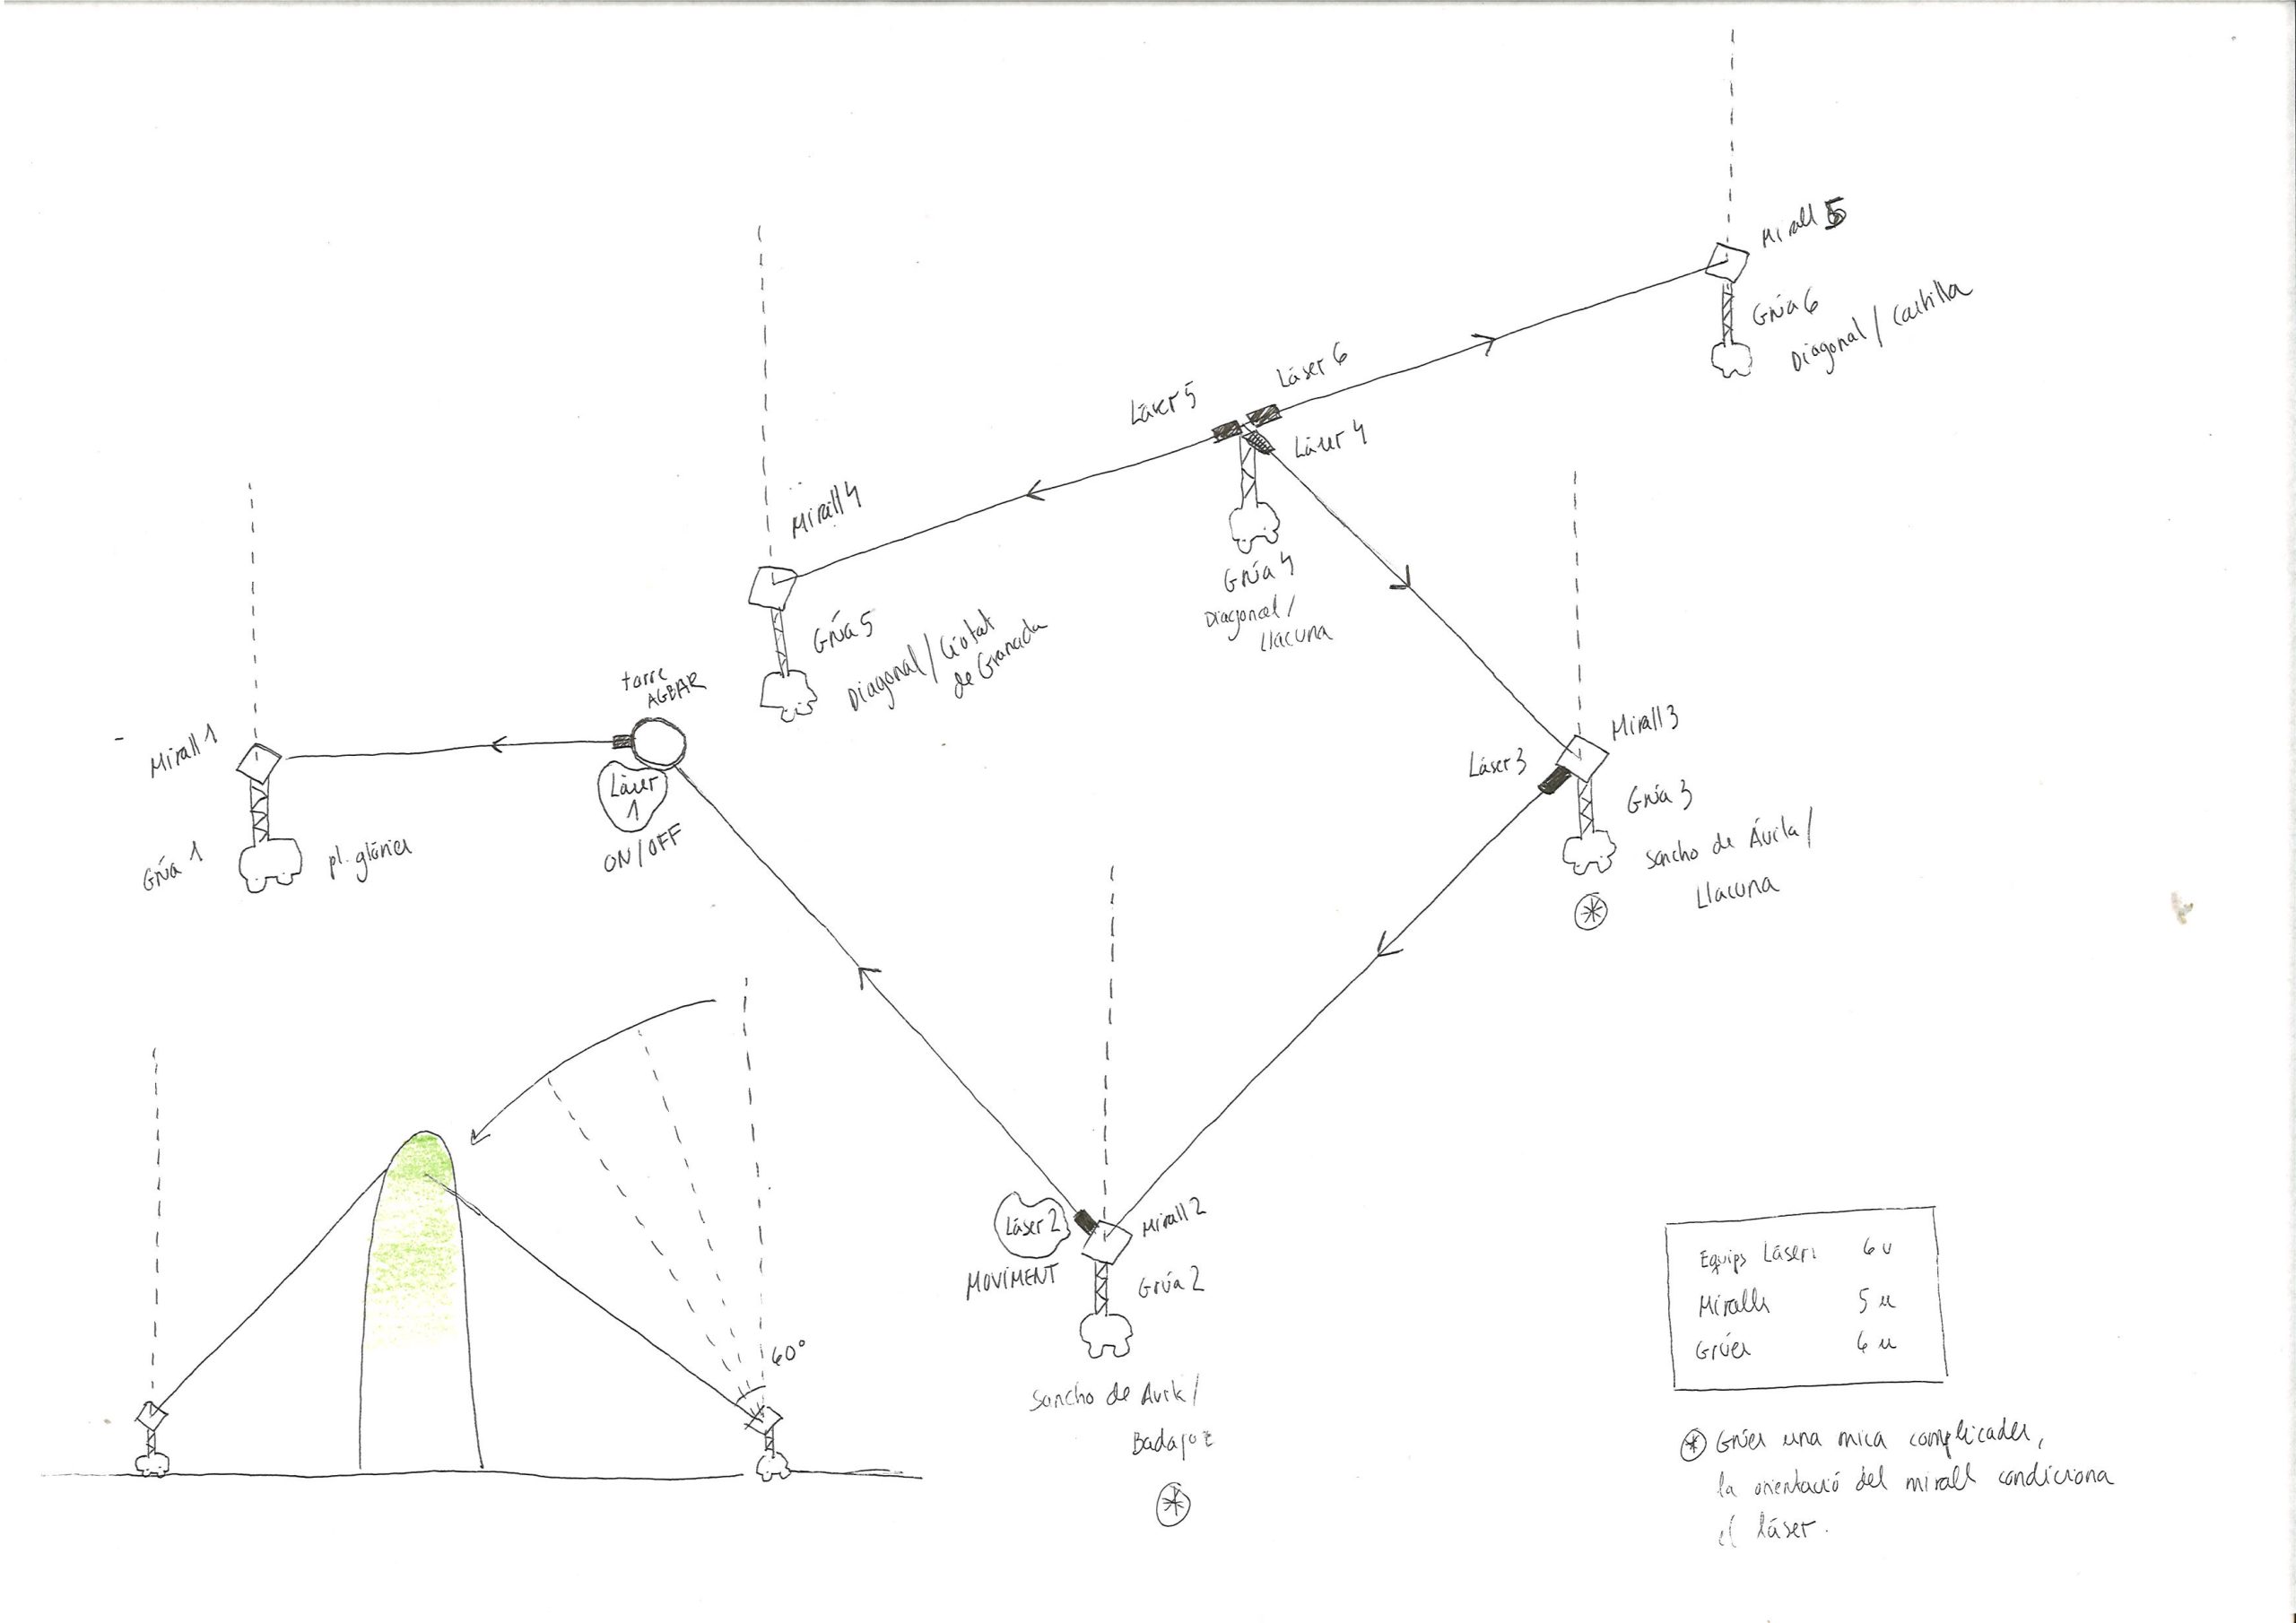 Mirall 5
Grúa 6
Diagonal / Castilla
Láser 5
Láser 6
Láser 4
Grúa 4
Diagonal /
Llacuna
Mirall 4
Grúa 5
Diagonal / Ciutat
de Granada
torre
AGBAR
Láser
1
ON/OFF
Mirall 1
Grúa 1
pl. glòries
Mirall 3
Láser 3
Grúa 3
Sancho de Ávila /
Llacuna
Láser 2
MOVIMENT
Mirall 2
Grúa 2
Sancho de Avila /
Badajoz
60°
Equips Láser: 6 u
Miralls 5 u
Grúes 6 u
Grúes una mica complicades,
la orientació del mirall condiciona
el láser.